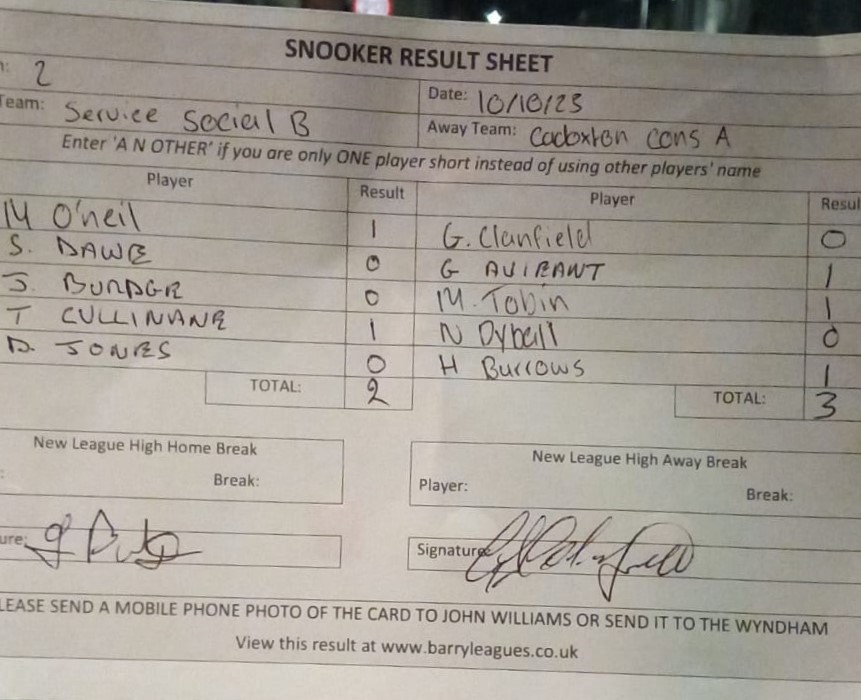 SNOOKER RESULT SHEET
: 2 Date: 10/10/23
Team: Service Social B Away Team: Cadoxton Cons A
Enter 'A N OTHER' if you are only ONE player short instead of using other players' name
Player Result Player Resul
M O'neil 1 G. Clanfield 0
S. DAWE 0 G AVIRANT 1
J. BURDGE 0 M. Tobin 1
T CULLINANE 1 N Dyball 0
D. JONES 0 H Burrows 1
TOTAL: 2 TOTAL: 3
New League High Home Break New League High Away Break
: Break: Player: Break:
ure: Signature:
LEASE SEND A MOBILE PHONE PHOTO OF THE CARD TO JOHN WILLIAMS OR SEND IT TO THE WYNDHAM
View this result at www.barryleagues.co.uk